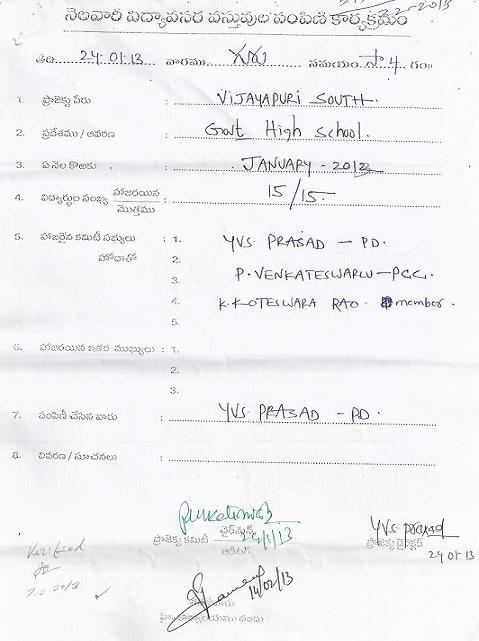 2-2013
నెలవారీ విద్యావసర వస్తువుల పంపిణీ కార్యక్రమం
తేది.....24.01.13.....వారము.....గురు.....సమయం.సా 4. గం॥
1. ప్రాజెక్టు పేరు : VIJAYAPURI SOUTH.
2. ప్రదేశము / ఆవరణ : Govt High School.
3. ఏ నెల కొఱకు : JANUARY - 2013
4. విద్యార్థుల సంఖ్య హాజరయిన / మొత్తము : 15/15.
5. హాజరైన కమిటీ సభ్యులు : 1. YVS PRASAD - PD.
హోదాతో 2.
3. P. VENKATESWARLU - PCC.
4. K. KOTESWARA RAO - member.
5.
6. హాజరయిన ఇతర ముఖ్యులు : 1.
2.
3.
7. పంపిణీ చేసిన వారు : YVS PRASAD - PD.
8. వివరణ / సూచనలు :
ప్రాజెక్టు కమిటీ ఛైర్మన్
ఆడిటర్
YVS prasad
ప్రాజెక్టు డైరెక్టర్
24.01.13
Verified
7.2.2013
14/02/13